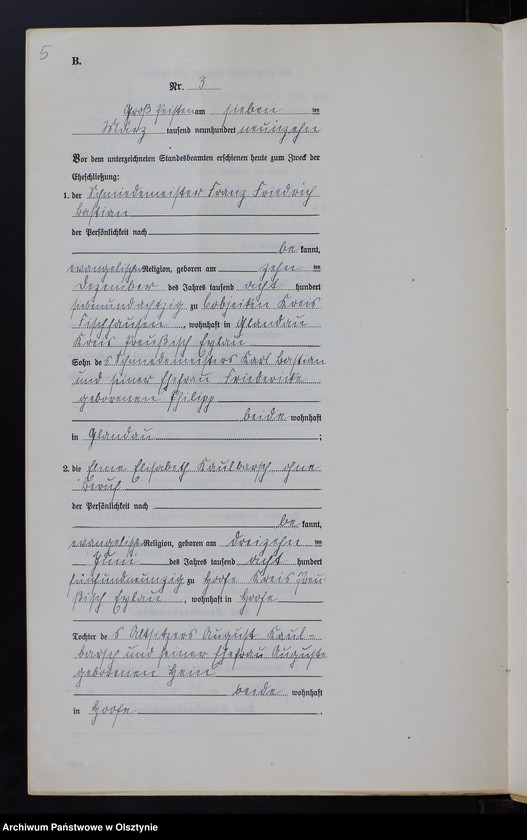 5
B.
Nr. 3
Groß Peisten am sieben ten
März tausend neunhundert neunzehn
Vor dem unterzeichneten Standesbeamten erschienen heute zum Zweck der
Eheschließung:
1. der Schmiedemeister Franz Friedrich
Bastian
der Persönlichkeit nach
be kannt,
evangelischer Religion, geboren am zehn ten
Dezember des Jahres tausend acht hundert
siebenundachtzig zu Cobjeiten Kreis
Fischhausen, wohnhaft in Glandau
Kreis Preußisch Eylau
Sohn des Schmiedemeisters Karl Bastian
und seiner Ehefrau Friederike
geborenen Philipp
beide wohnhaft
in Glandau ;
2. die Elisabeth Kaulbarsch ohne
Beruf
der Persönlichkeit nach
be kannt,
evangelischer Religion, geboren am dreizehn ten
Juni des Jahres tausend acht hundert
fünfundneunzig zu Hoofe Kreis Preu-
ßisch Eylau, wohnhaft in Hoofe
Tochter des Altsitzers August Kaul-
barsch und seiner Ehefrau Auguste
geborenen Hein
beide wohnhaft
in Hoofe .
Archiwum Państwowe w Olsztynie